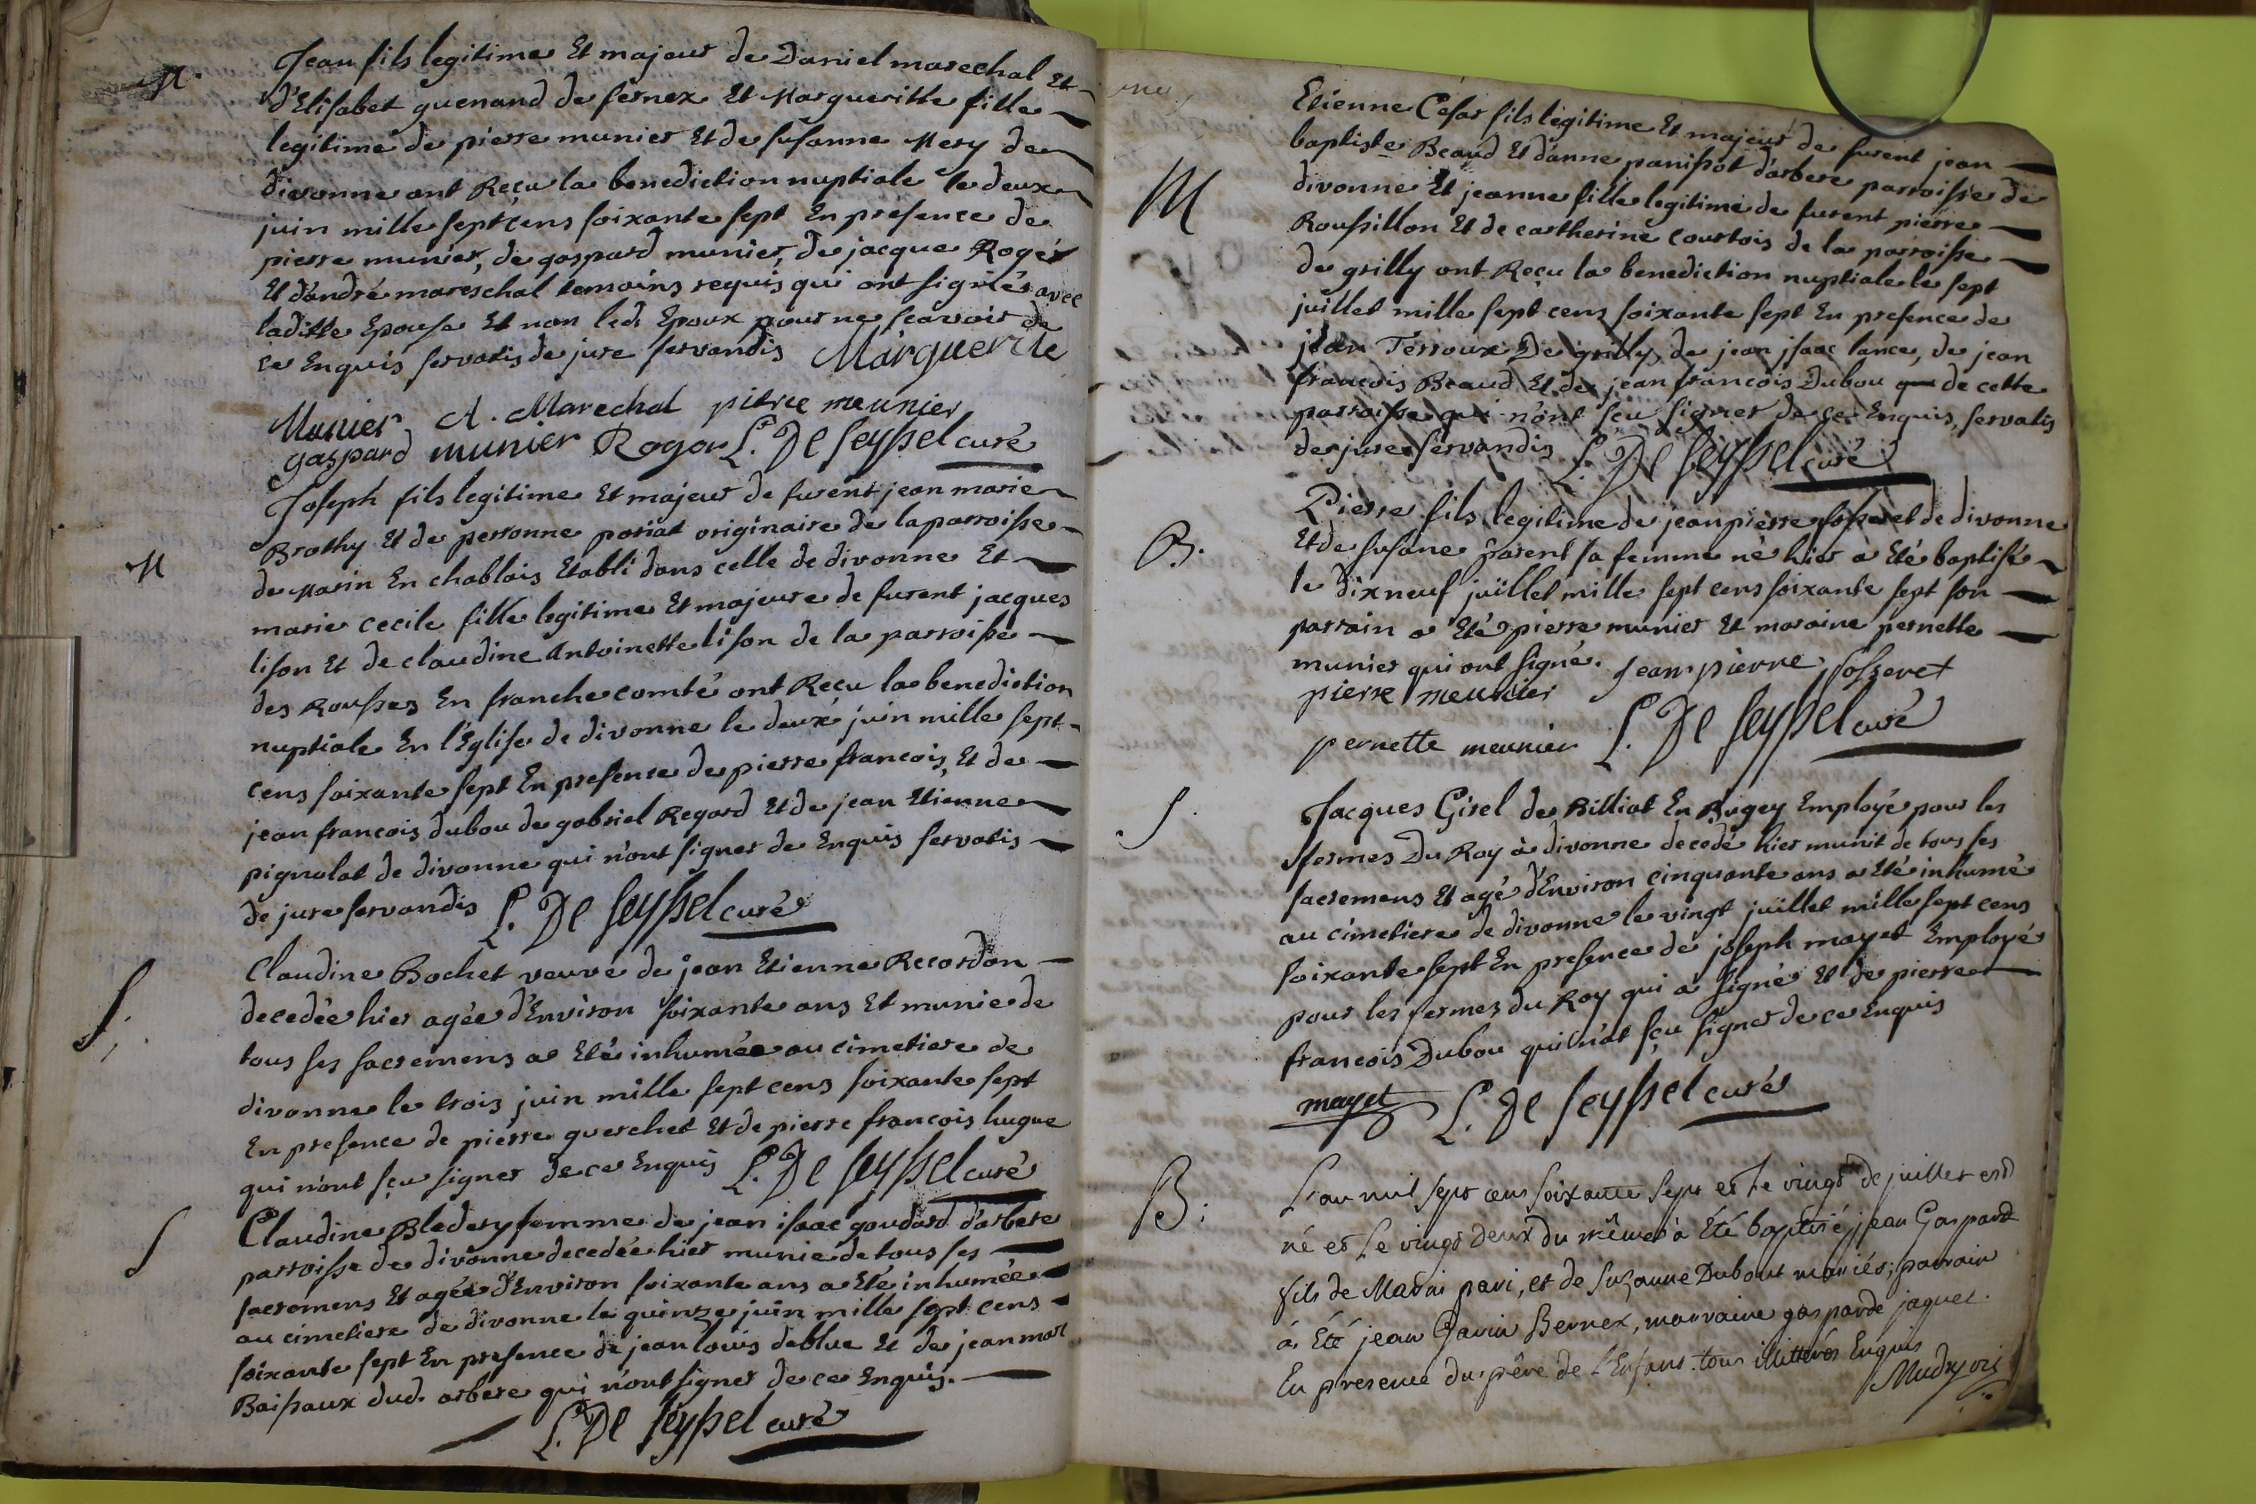 M.
Jean fils legitime Et majeur de Daniel marechal Et
d'Elisabet guenand de fernex Et Margueritte fille
legitime de pierre munier Et de susanne Mery de
divonne ont Reçu la benediction nuptiale le deux
juin mille sept cens soixante sept En présence de
pierre munier, de gaspard munier, de jacque Roger
Et d'andré mareschal temoins requis qui ont signés avec
laditte Epouse Et non led. Epoux pour ne scavoir de
ce Enquis servatis de jure servandis Marguerite
Munier A. Marechal pierre meunier
gaspard munier Roger L. De Seyssel curé
M
Joseph fils legitime Et majeur de furent jean marie
Brothy Et de peronne poriat originaire de la parroisse
de Marin En chablais Etabli dans celle de divonne Et
marie cecile fille legitime Et majeure de furent jacques
lison Et de claudine Antoinette lison de la parroisse
des Rousses En franche comté ont Reçu la benediction
nuptiale En l'Eglise de divonne le deuxé juin mille sept
cens soixante sept En presence de pierre francois, Et de
jean francois dubou de gabriel Regard Et de jean Etienne
pignolat de divonne qui n'ont signer de Enquis servatis
de jure servandis L. De Seyssel curé
S.
Claudine Bochet veuve de jean Etienne Recordon
decedée hier agée d'Environ soixante ans Et munie de
tous ses sacremens a Eté inhumée au cimetiere de
divonne le trois juin mille sept cens soixante sept
En presence de pierre guerchet Et de pierre francois hugue
qui n'ont sçu signer de ce Enquis L. De Seyssel curé
S
Claudine Bledery femme de jean isaac goudard d'arbere
parroisse de divonne decedée hier munie de tous ses
sacremens Et agée d'Environ soixante ans a Eté inhumée
au cimetiere de divonne le quinze juin mille sept cens
soixante sept En presence de jean louis deblue Et de jean marc
Baissaux dud. arbere qui n'ont signer de ce Enquis.
L. De Seyssel curé
M
Etienne Cesar fils legitime Et majeur de furent jean
baptiste Beaud Et d'anne panissot d'arbere parroisse de
divonne Et jeanne fille legitime de furent pierre
Roussillon Et de cartherine Courtois de la parroisse
de grilly ont Reçu la benediction nuptiale le sept
juillet mille sept cens soixante sept En presence de
jean Terroux De grilly, de jean isaac lance, de jean
francois Beaud Et de jean francois Dubou de cette
parroisse qui n'ont sçu signer de ce Enquis, servatis
de jure servandis L. De Seyssel curé
B.
Pierre fils legitime de jean pierre sosseret de divonne
Et de susane parent sa femme né hier a Eté baptisé
le dixneuf juillet mille sept cens soixante sept son
parrain a Eté pierre munier Et maraine pernette
munier qui ont signé. jean pierre sosseret
pierre meunier
pernette meunier L. De Seyssel curé
S.
Jacques Girel de Billiat En Bugey Employé pour les
fermes Du Roy à divonne decedé hier munit de tous ses
sacremens Et agé d'Environ cinquante ans a Eté inhumé
au cimetiere de divonne le vingt juillet mille sept cens
soixante sept En presence de joseph mayet Employé
pour les fermes du Roy qui a signé Et de pierre
francois Dubou qui n'at sçu signer de ce Enquis
mayet L. De Seyssel curé
B:
L'an mil sept cens soixante sept et le vingt de juillet est
né et le vingt deux du même à été baptisé jean Gaspard
fils de pari, et de Suzanne Dubout mariés; parrain
à été jean Bernex, marraine gasparde jaquet.
En presence du pêre de l'Enfant tous illitterés Enquis